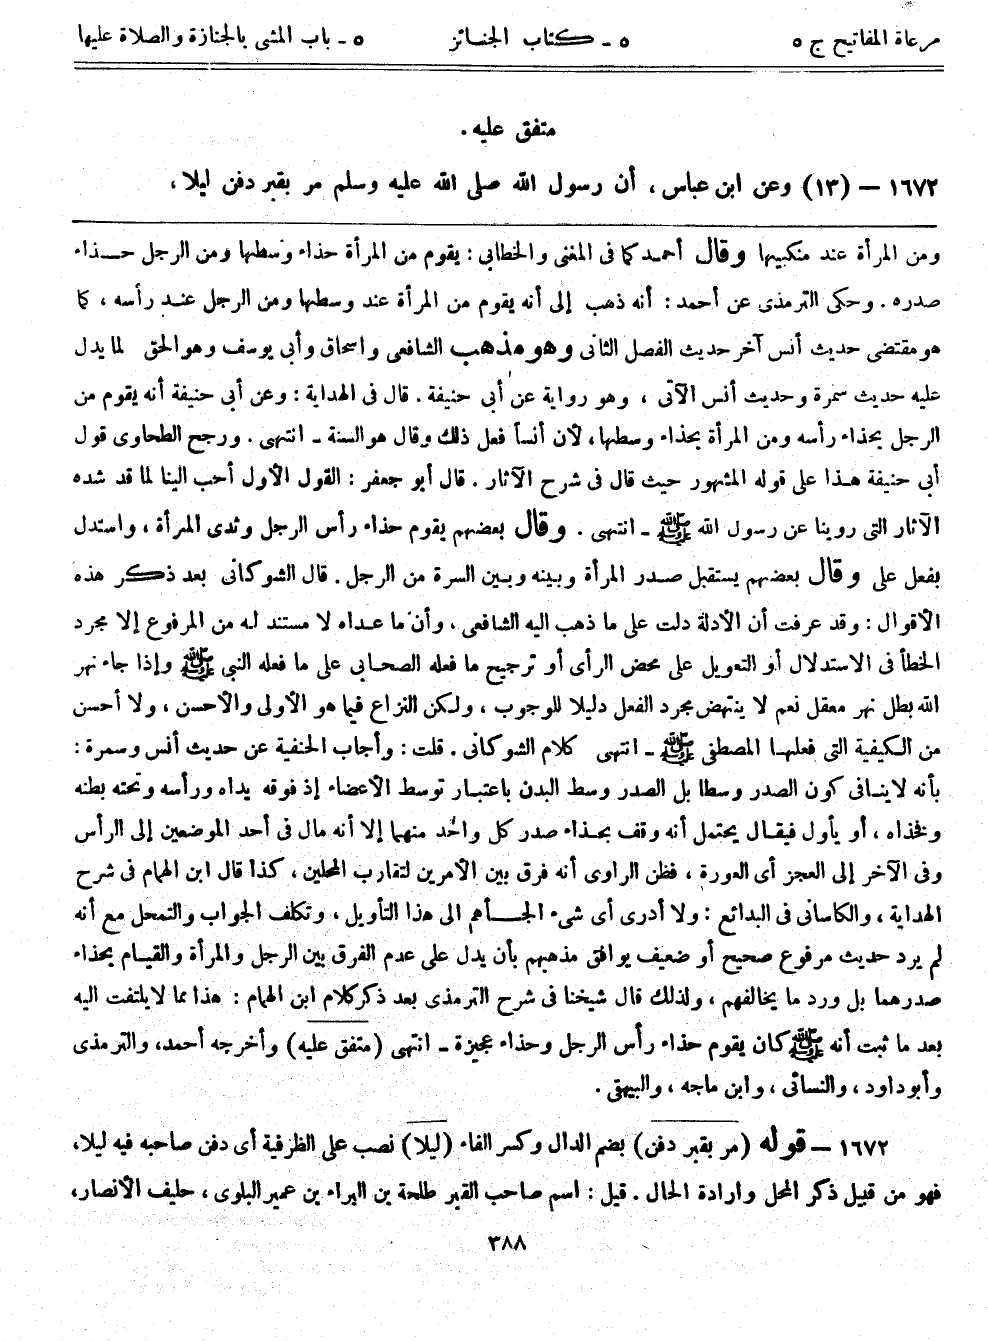 مرعاة المفاتيح ج ٥ ٥ ـ كتاب الجنائز ٥ ـ باب المشى بالجنازة والصلاة عليها
متفق عليه .
١٦٧٢ – (١٣) وعن ابن عباس ، أن رسول الله صلى الله عليه وسلم مر بقبر دفن ليلا ،
ومن المرأة عند منكبيها وقال أحمد كما فى المغنى والخطابى : يقوم من المرأة حذاء وسطها ومن الرجل حذاء
صدره . وحكى الترمذى عن أحمد : أنه ذهب إلى أنه يقوم من المرأة عند وسطها ومن الرجل عند رأسه ، كما
هو مقتضى حديث أنس آخر حديث الفصل الثانى وهو مذهب الشافعى واسحاق وأبى يوسف وهو الحق لما يدل
عليه حديث سمرة وحديث أنس الآتى ، وهو رواية عن أبى حنيفة . قال فى الهداية : وعن أبى حنيفة أنه يقوم من
الرجل بحذاء رأسه ومن المرأة بحذاء وسطها ، لأن أنسأ فعل ذلك وقال هو السنة ـ انتهى . ورجح الطحاوى قول
أبى حنيفة هذا على قوله المشهور حيث قال فى شرح الآثار . قال أبو جعفر : القول الأول أحب الينا لما قد شده
الآثار التى روينا عن رسول الله ﷺ ـ انتهى . وقال بعضهم يقوم حذاء رأس الرجل وثدى المرأة ، واستدل
بفعل على وقال بعضهم يستقبل صدر المرأة وبينه وبين السرة من الرجل . قال الشوكانى بعد ذكر هذه
الأقوال : وقد عرفت أن الأدلة دلت على ما ذهب اليه الشافعى ، وأن ما عداه لا مستند له من المرفوع إلا مجرد
الخطأ فى الاستدلال أو التعويل على محض الرأى أو ترجيح ما فعله الصحابى على ما فعله النبى ﷺ وإذا جاء نهر
الله بطل نهر معقل نعم لا ينتهض مجرد الفعل دليلا للوجوب ، ولكن النزاع فيما هو الأولى والأحسن ، ولا أحسن
من الكيفية التى فعلها المصطفى ﷺ ـ انتهى كلام الشوكانى . قلت : وأجاب الحنفية عن حديث أنس وسمرة :
بأنه لاينافى كون الصدر وسطا بل الصدر وسط البدن باعتبار توسط الأعضاء إذ فوقه يداه ورأسه وتحته بطنه
وفخذاه ، أو يأول فيقال يحتمل أنه وقف بحذاء صدر كل واحد منهما إلا أنه مال فى أحد الموضعين إلى الرأس
وفى الآخر إلى العجز أى العورة ، فظن الراوى أنه فرق بين الأمرين لتقارب المحلين ، كذا قال ابن الهمام فى شرح
الهداية ، والكاسانى فى البدائع : ولا أدرى أى شىء الجأهم الى هذا التأويل ، وتكلف الجواب والتمحل مع أنه
لم يرد حديث مرفوع صحيح أو ضعيف يوافق مذهبهم بأن يدل على عدم الفرق بين الرجل والمرأة والقيام بحذاء
صدرهما بل ورد ما يخالفهم ، ولذلك قال شيخنا فى شرح الترمذى بعد ذكر كلام ابن الهمام : هذا مما لايلتفت اليه
بعد ما ثبت أنه ﷺ كان يقوم حذاء رأس الرجل وحذاء عجيزة ـ انتهى (متفق عليه) وأخرجه أحمد، والترمذى
وأبوداود ، والنسائى ، وابن ماجه ، والبيهقى .
١٦٧٢ – قوله (مر بقبر دفن) بضم الدال وكسر الفاء (ليلا) نصب على الظرفية أى دفن صاحبه فيه ليلا،
فهو من قبيل ذكر المحل وارادة الحال . قيل : اسم صاحب القبر طلحة بن البراء بن عمير البلوى ، حليف الأنصار،
٣٨٨